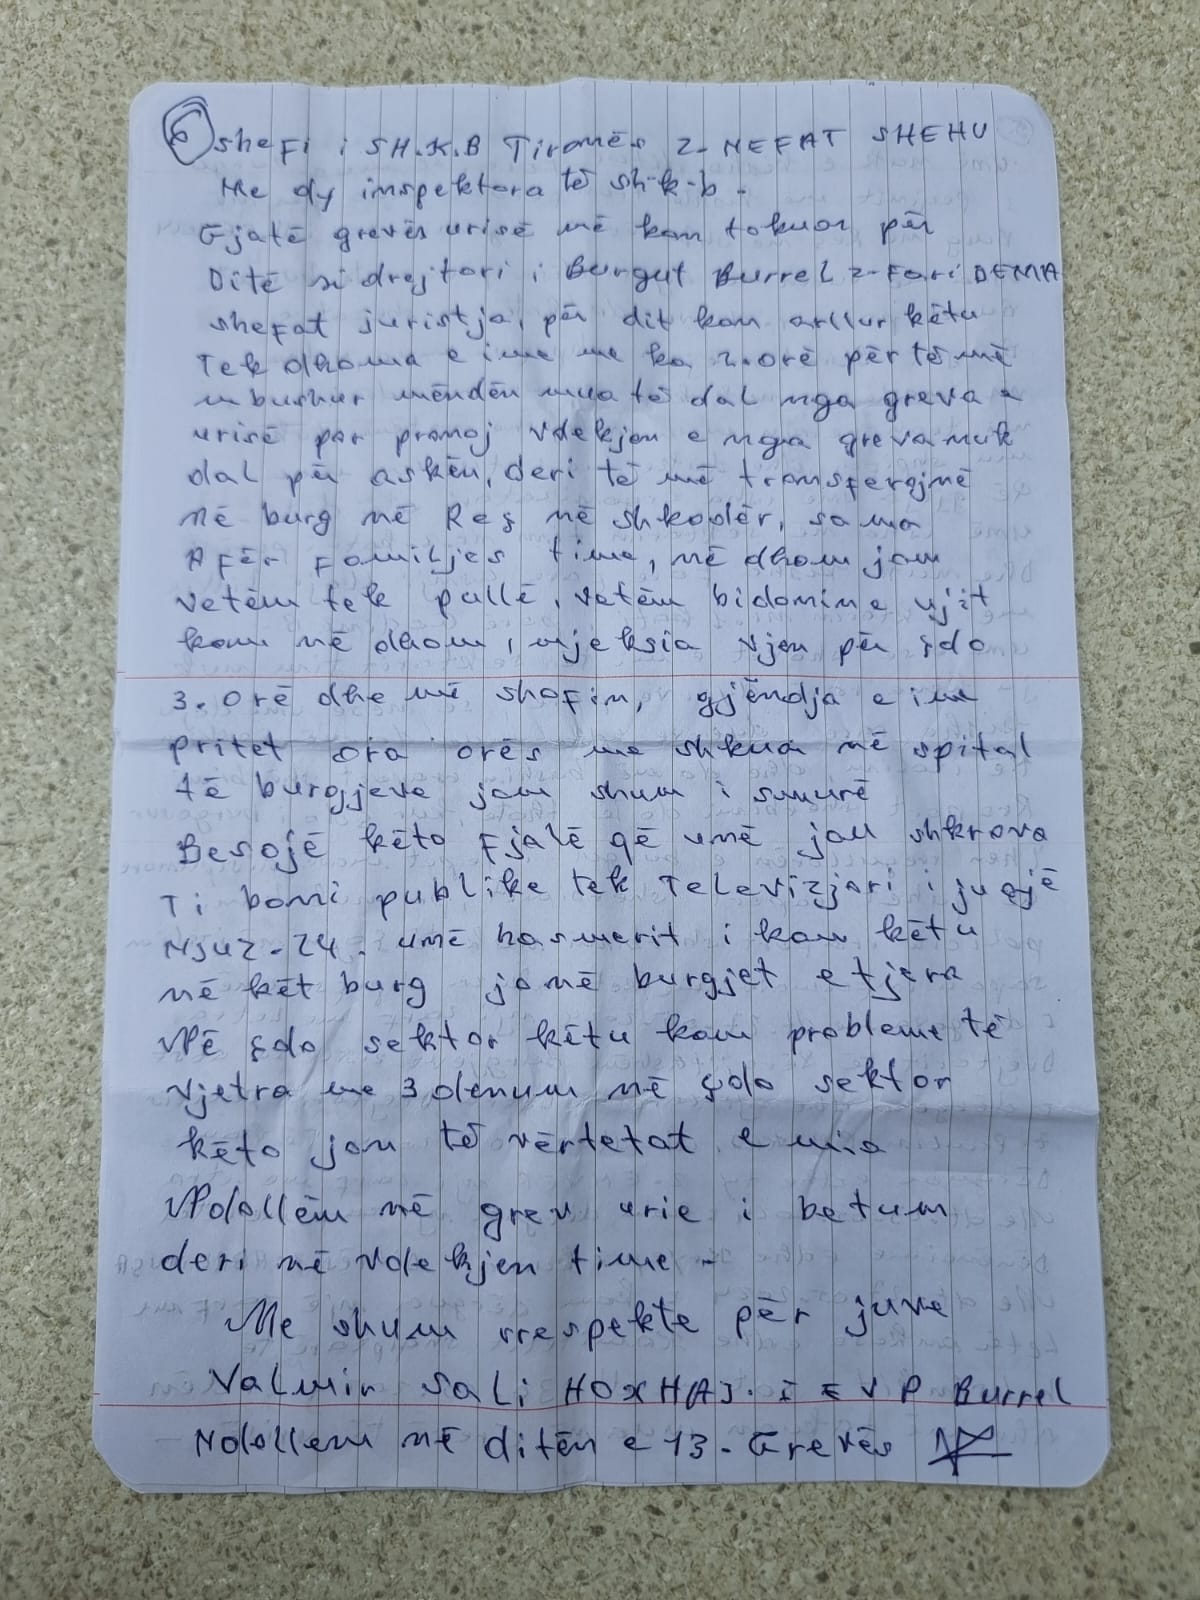 6 shefi i SH.K.B Tiranës z- NEFAT SHEHU
Me dy inspektora të sh-k-b -
Gjatë grevës urisë më kan takuar për
Ditë si drejtori i Burgut Burrel z- Fari DEMA
shefat juristja, për dit kan arllur këtu
Tek dhoma e ime me ka 2.orë për të më
mbushur mëndën mua të dal nga greva e
urisë por pranoj vdekjen e nga greva nuk
dal për askën, deri të më transferojnë
në burg në Reç në shkodër, sa ma
Afër Familjes time, në dhom jam
vetëm fek pallë, vetëm bidonin e ujit
kam në dhom, mjeksia vjen për çdo
3. orë dhe më shofin, gjëndja e ime
pritet ora orës me shkua në spital
të burgjeve jam shum i smurë
Besojë këto fjalë që unë jau shkrova
Ti boni publike tek Televizjori i juajë
Njuz-24. unë hasmerit i kam këtu
në kët burg janë burgjet e tjera
Në çdo sektor këtu kam probleme të
vjetra me 3 denum në çdo sektor
këto jan të vërtetat e mia
Ndollëm në grev urie i betum
deri në vdekjen time -
Me shum rrespekte për juve
Valmir Sali HOXHAJ. I E V P Burrel
Ndollem në ditën e 13. Grevës